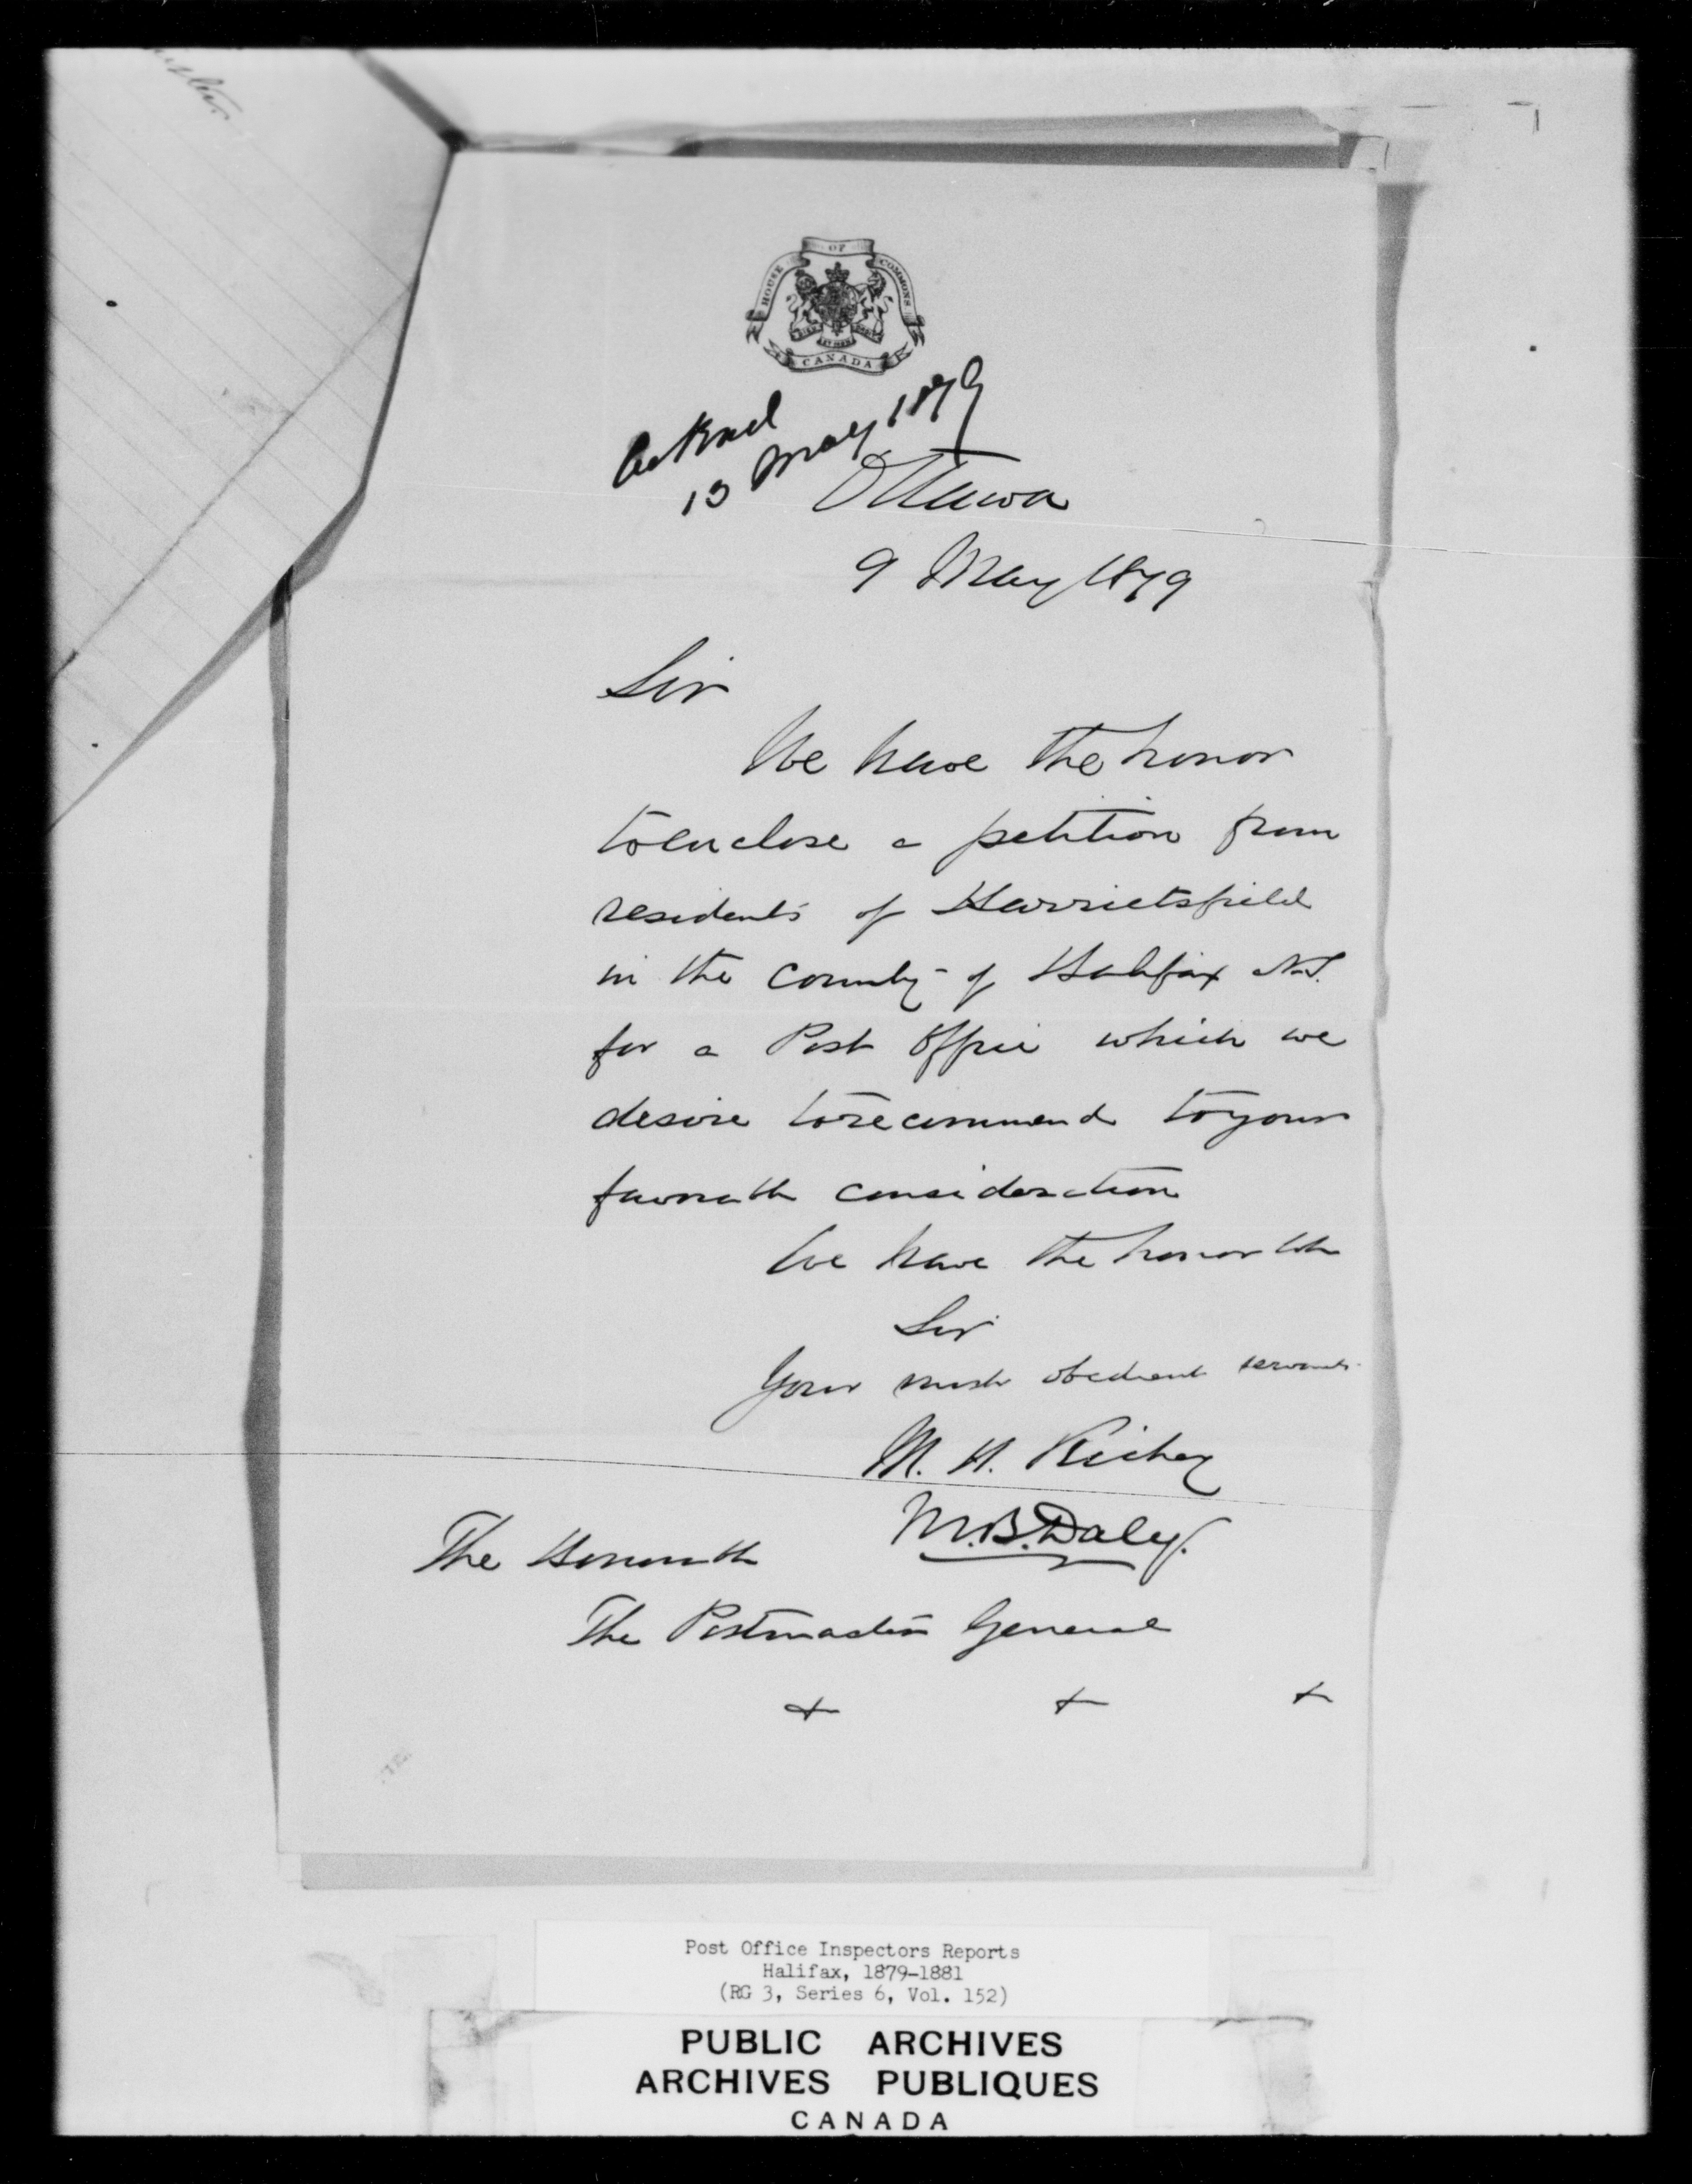 HOUSE OF COMMONS
CANADA
Ackned
13 May 1879
Ottawa
9 May 1879
Sir
We have the honor
to enclose a petition from
residents of Harrietsfield
in the County of Halifax N.S.
for a Post Office which we
desire to recommend to your
favorable consideration
We have the honor to be
Sir
Your most obedient servants
M. H. Richey
M.B. Daly.
The Honorable
The Postmaster General
+ + +
Post Office Inspectors Reports
Halifax, 1879-1881
(RG 3, Series 6, Vol. 152)
PUBLIC ARCHIVES
ARCHIVES PUBLIQUES
CANADA